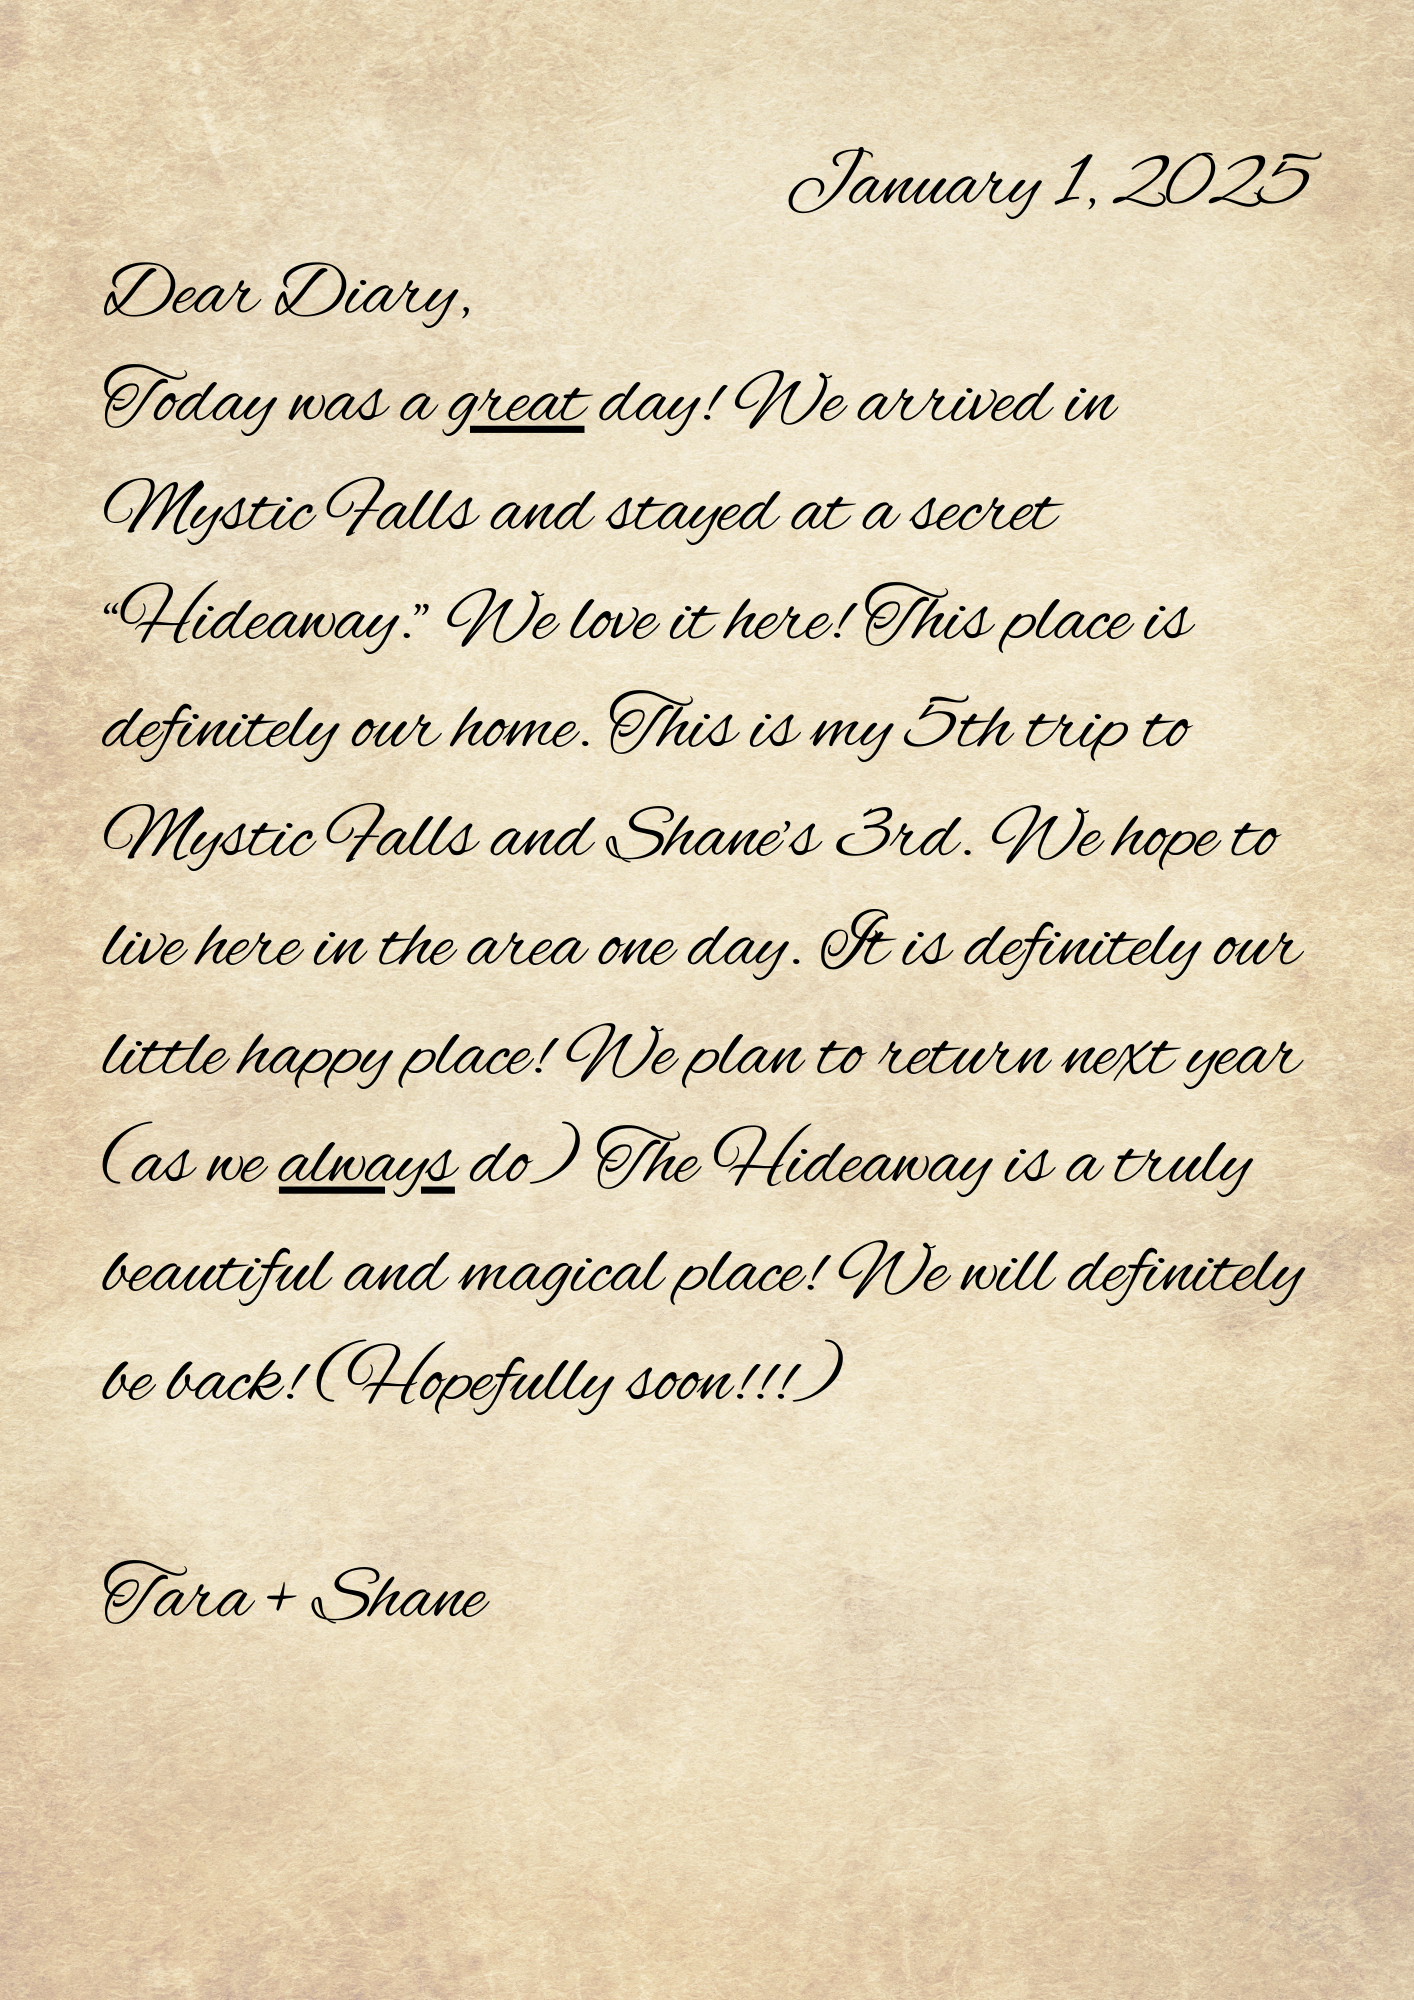 January 1, 2025
Dear Diary,
Today was a great day! We arrived in
Mystic Falls and stayed at a secret
“Hideaway.” We love it here! This place is
definitely our home. This is my 5th trip to
Mystic Falls and Shane's 3rd. We hope to
live here in the area one day. It is definitely our
little happy place! We plan to return next year
(as we always do) The Hideaway is a truly
beautiful and magical place! We will definitely
be back! (Hopefully soon!!!)
Tara + Shane